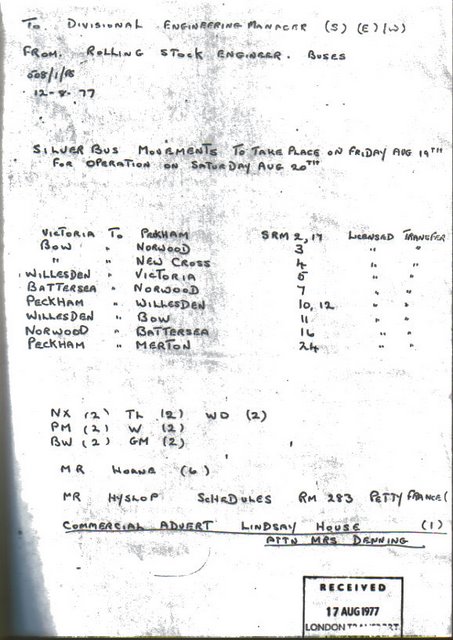 To. DIVISIONAL ENGINEERING MANAGER (S) (E) (W)
FROM. ROLLING STOCK ENGINEER. BUSES
12-8-77
SILVER BUS MOVEMENTS TO TAKE PLACE ON FRIDAY AUG 19TH
FOR OPERATION ON SATURDAY AUG 20TH
VICTORIA TO PECKHAM SRM 2, 17 LICENSED TRANSFER
BOW " NORWOOD 3 " "
" " NEW CROSS 4 " "
WILLESDEN " VICTORIA 5 " "
BATTERSEA " NORWOOD 7 " "
PECKHAM " WILLESDEN 10, 12 " "
WILLESDEN " BOW 11 " "
NORWOOD " BATTERSEA 16 " "
PECKHAM " MERTON 24 " "
NX (2) TL (2) WD (2)
PM (2) W (2)
BW (2) GM (2)
MR HORNE (6)
MR HYSLOP SCHEDULES RM 283 PETTY FRANCE (
COMMERCIAL ADVERT LINDSAY HOUSE (1)
ATTN MRS DENNING
RECEIVED
17 AUG 1977
LONDON TRANSPORT